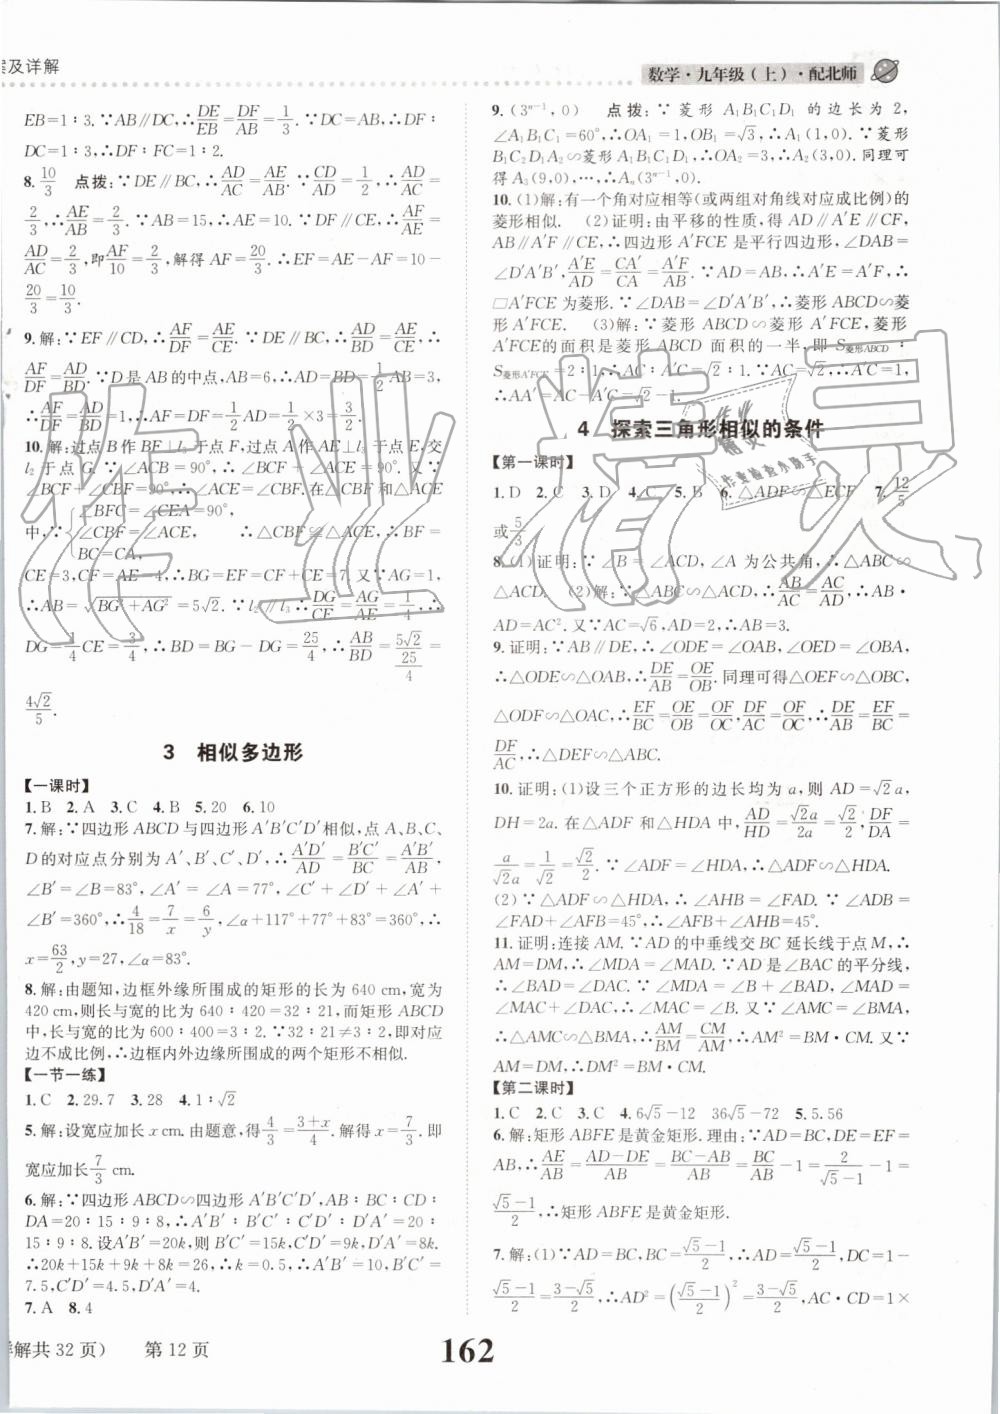 案及详解
数学·九年级(上)·配北师
EB=1∶3.∵AB∥DC,∴DE/EB=DF/AB=1/3.∴DF∶
DC=1∶3,∴DF∶FC=1∶2.
8. 10/3 点拨:∵DE∥BC,∴AD/AC=AE/AB.∵CD/AD=1/2,∴AD/AC=
2/3,∴AE/AB=2/3.∵AB=15,∴AE=10.∵DF∥CE,∴AF/AE=
AD/AC=2/3,即AF/10=2/3,解得AF=20/3.∴EF=AE-AF=10-
20/3=10/3.
9.解:∵EF∥CD,∴AF/DF=AE/CE.∵DE∥BC,∴AD/BD=AE/CE,∴
AF/DF=AD/BD.∵D是AB的中点,AB=6,∴AD=BD=1/2AB=3,
∴AF/DF=AD/BD=1,∴AF=DF=1/2AD=1/2×3=3/2.
10.解:过点B作BF⊥l₃于点F,过点A作AE⊥l₃于点E,交
l₂于点G.∵∠ACB=90°,∴∠BCF+∠ACE=90°.又∵
∠BCF+∠CBF=90°,∴∠ACE=∠CBF.在△BCF和△ACE
中,∵{∠BFC=∠CEA=90°,
∠CBF=∠ACE,
BC=CA,
∴△CBF≌△ACE,∴BF=
CE=3,CF=AE=4,∴BG=EF=CF+CE=7.又∵AG=1,
∴AB=√(BG²+AG²)=5√2.∵l₂∥l₃,∴DG/CE=AG/AE=1/4,∴
DG=1/4CE=3/4,∴BD=BG-DG=25/4,∴AB/BD=5√2/(25/4)=
4√2/5.
3 相似多边形
【一课时】
1.B 2.A 3.C 4.B 5.20 6.10
7.解:∵四边形ABCD与四边形A′B′C′D′相似,点A、B、C、
D的对应点分别为A′、B′、C′、D′,∴A′D′/AD=B′C′/BC=A′B′/AB,
∠B′=∠B=83°,∠A′=∠A=77°,∠C′+∠D′+∠A′+
∠B′=360°,∴4/18=7/x=6/y,∠α+117°+77°+83°=360°,∴
x=63/2,y=27,∠α=83°.
8.解:由题知,边框外缘所围成的矩形的长为640 cm,宽为
420 cm,则长与宽的比为640∶420=32∶21,而矩形ABCD
中,长与宽的比为600∶400=3∶2.∵32∶21≠3∶2,即对应
边不成比例,∴边框内外边缘所围成的两个矩形不相似.
【一节一练】
1.C 2.29.7 3.28 4.1∶√2
5.解:设宽应加长x cm.由题意,得4/3=(3+x)/4.解得x=7/3.即
宽应加长7/3 cm.
6.解:∵四边形ABCD∽四边形A′B′C′D′,AB∶BC∶CD∶
DA=20∶15∶9∶8,∴A′B′∶B′C′∶C′D′∶D′A′=20∶
15∶9∶8.设A′B′=20k,则B′C′=15k,C′D′=9k,D′A′=8k.
∴20k+15k+9k+8k=26,∴k=1/2.∴A′B′=10,B′C′=
7.5,C′D′=4.5,D′A′=4.
7.A 8.4
详解共32页) 第12页
9.(3ⁿ⁻¹,0) 点拨:∵菱形A₁B₁C₁D₁的边长为2,
∠A₁B₁C₁=60°,∴OA₁=1,OB₁=√3,∴A₁(1,0).∵菱形
B₁C₂D₁A₂∽菱形A₁B₁C₁D₁,∴OA₂=3,∴A₂(3,0).同理可
得A₃(9,0),…,∴Aₙ(3ⁿ⁻¹,0).
10.(1)解:有一个角对应相等(或两组对角线对应成比例)的
菱形相似. (2)证明:由平移的性质,得AD∥A′E∥CF,
AB∥A′F∥CE,∴四边形A′FCE是平行四边形,∠DAB=
∠D′A′B′,A′E/AD=CA′/CA=A′F/AB.∵AD=AB,∴A′E=A′F,∴
□A′FCE为菱形.∵∠DAB=∠D′A′B′,∴菱形ABCD∽菱
形A′FCE. (3)解:∵菱形ABCD∽菱形A′FCE,菱形
A′FCE的面积是菱形ABCD面积的一半,即S菱形ABCD∶
S菱形A′FCE=2∶1,∴AC∶A′C=√2∶1.∵AC=√2,∴A′C=
1,∴AA′=AC-A′C=√2-1.
4 探索三角形相似的条件
【第一课时】
1.D 2.C 3.D 4.C 5.B 6.△ADF∽△ECF 7.12/5
或5/3
8.(1)证明:∵∠B=∠ACD,∠A为公共角,∴△ABC∽
△ACD. (2)解:∵△ABC∽△ACD,∴AB/AC=AC/AD,∴AB·
AD=AC².又∵AC=√6,AD=2,∴AB=3.
9.证明:∵AB∥DE,∴∠ODE=∠OAB,∠OED=∠OBA,
∴△ODE∽△OAB,∴DE/AB=OE/OB.同理可得△OEF∽△OBC,
△ODF∽△OAC,∴EF/BC=OE/OB=OF/OC,DF/AC=OF/OC,∴DE/AB=EF/BC=
DF/AC,∴△DEF∽△ABC.
10.证明:(1)设三个正方形的边长均为a,则AD=√2a,
DH=2a.在△ADF和△HDA中,AD/HD=√2a/2a=√2/2,DF/DA=
a/√2a=1/√2=√2/2.∵∠ADF=∠HDA,∴△ADF∽△HDA.
(2)∵△ADF∽△HDA,∴∠AHB=∠FAD.∵∠ADB=
∠FAD+∠AFB=45°,∴∠AFB+∠AHB=45°.
11.证明:连接AM.∵AD的中垂线交BC延长线于点M,∴
AM=DM,∴∠MDA=∠MAD.∵AD是∠BAC的平分线,
∴∠BAD=∠DAC.∵∠MDA=∠B+∠BAD,∠MAD=
∠MAC+∠DAC,∴∠MAC=∠B.又∵∠AMC=∠BMA,
∴△AMC∽△BMA,∴AM/BM=CM/AM,∴AM²=BM·CM.又∵
AM=DM,∴DM²=BM·CM.
【第二课时】
1.C 2.C 3.C 4.6√5-12 36√5-72 5.5.56
6.解:矩形ABFE是黄金矩形.理由:∵AD=BC,DE=EF=
AB,∴AE/AB=(AD-DE)/AB=(BC-AB)/AB=BC/AB-1=2/(√5-1)-1=
(√5-1)/2,∴矩形ABFE是黄金矩形.
7.解:(1)∵AD=BC,BC=(√5-1)/2,∴AD=(√5-1)/2,DC=1-
(√5-1)/2=(3-√5)/2.∵AD²=((√5-1)/2)²=(3-√5)/2,AC·CD=1×
162